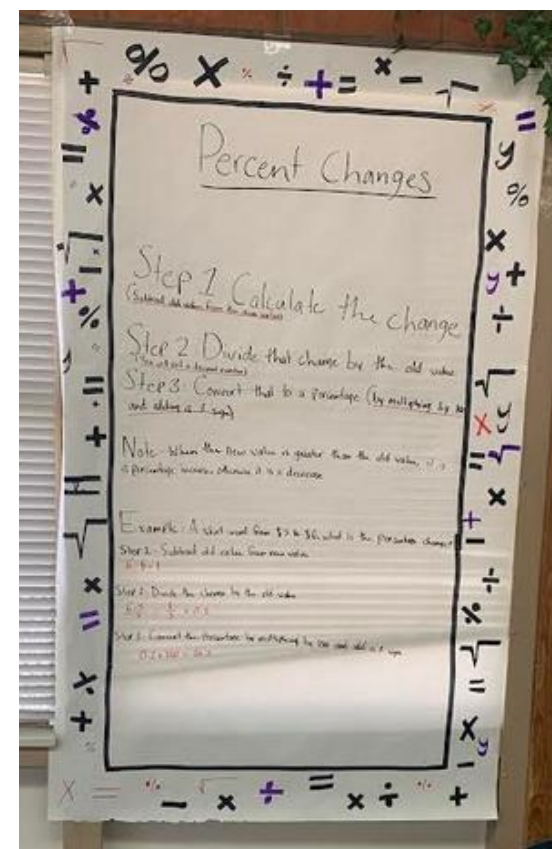 Percent Changes
Step 1 Calculate the change
(Subtract old value from the new value)
Step 2 Divide that change by the old value
(You will get a decimal number)
Step 3: Convert that to a percentage (by multiplying by 100
and adding a % sign)
Note: When the new value is greater than the old value, it is
a percentage increase otherwise it is a decrease
Example: A shirt went from $5 to $6, what is the percentage change?
Step 1: Subtract old value from new value
Step 2: Divide the change by the old value
Step 3: Convert the percentage by multiplying by 100 and add a % sign